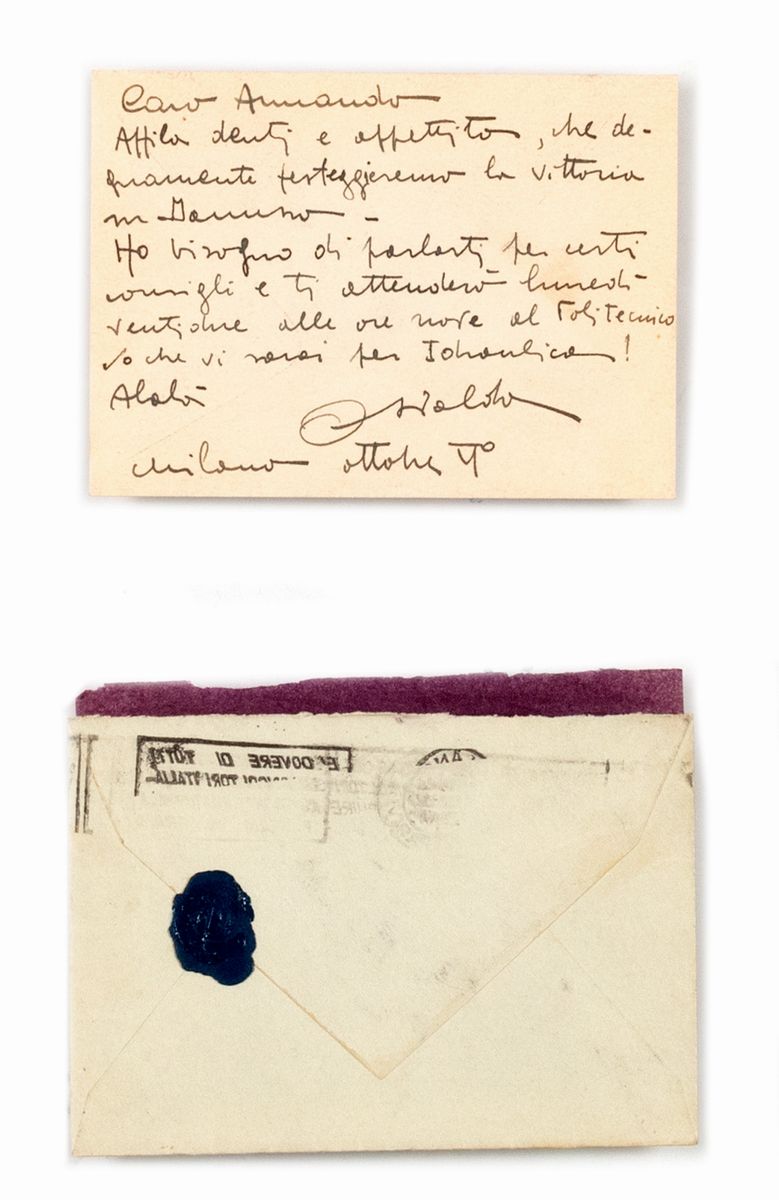 Caro Armando
Affila denti e appetito, che de-
gnamente festeggieremo la vittoria
su
Ho bisogno di parlarti per certi
consigli e ti attenderò lunedì
ventidue alle ore nove al Politecnico
so che vi sarai per Idraulica!
Alalà
Osvaldo
Milano ottobre Vº
E' DOVERE DI TUTTI
ITALIA